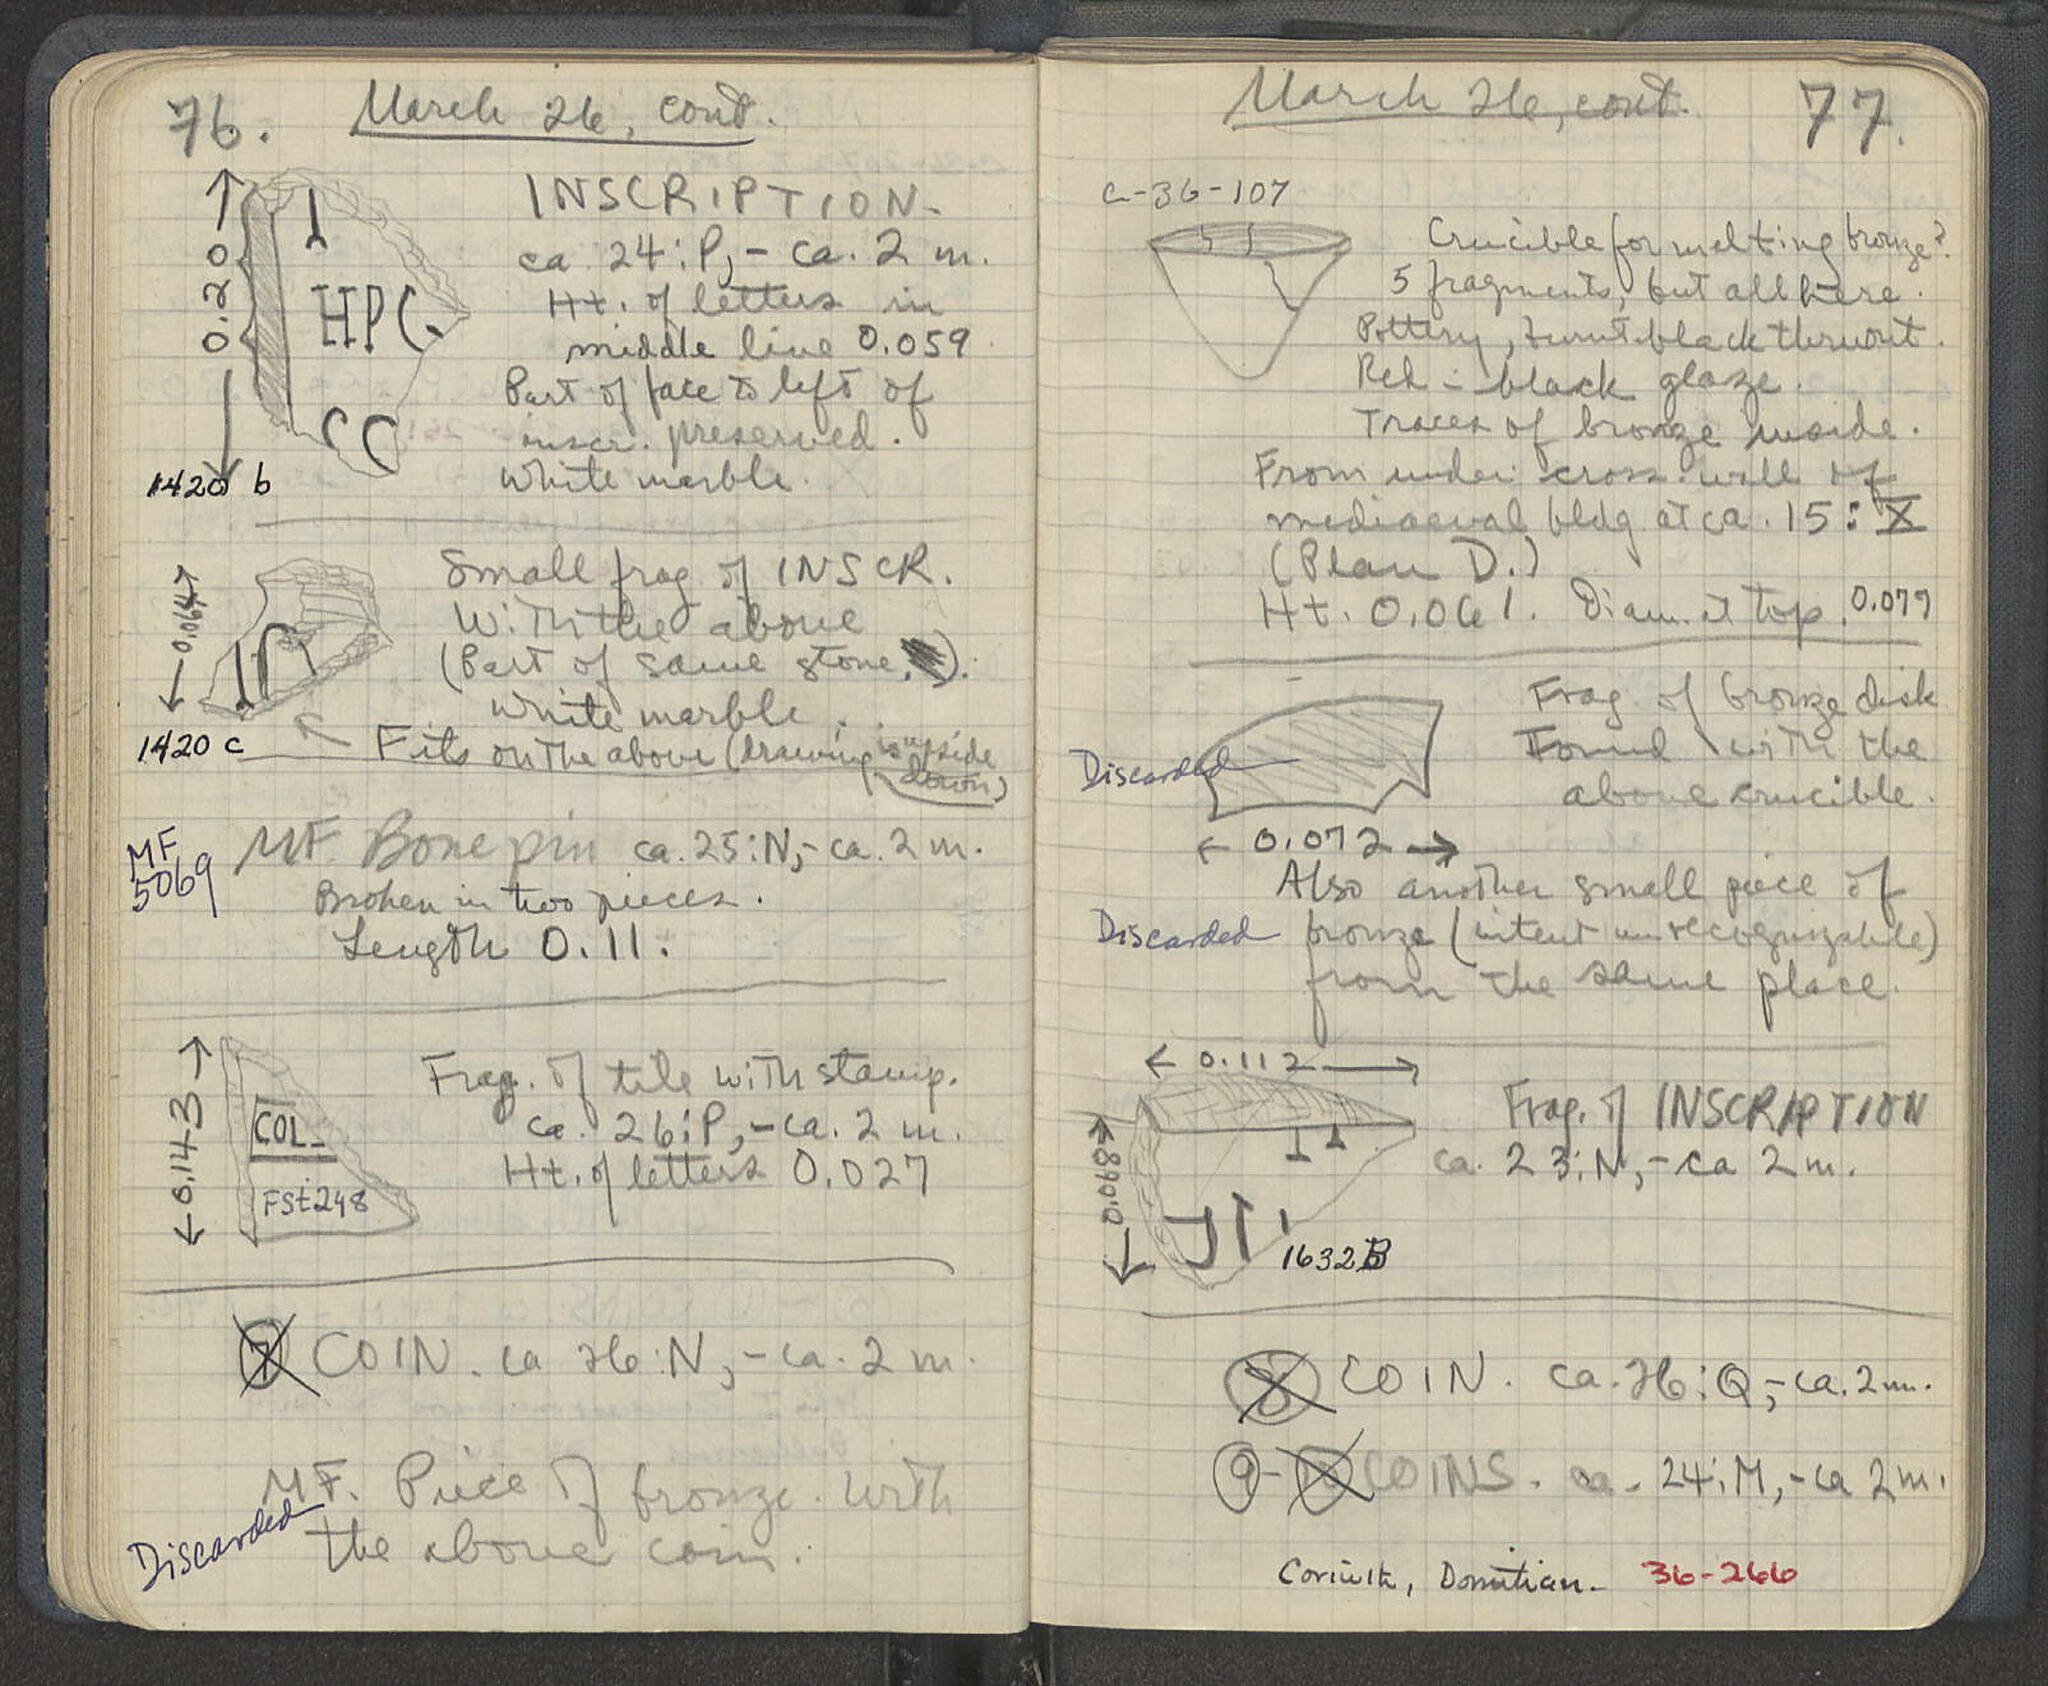 76.
March 26, cont.
INSCRIPTION.
ca. 24:P,- ca. 2 m.
Ht. of letters in
middle line 0.059
Part of face to left of
inscr. preserved.
White marble.
0.20
I
HPC
CC
1420 b
Small frag of INSCR.
With the above
(Part of same stone.).
White marble.
0.064
1420 c
Fits on the above (drawing is upside
down)
MF
5069
MF. Bone pin ca. 25:N,- ca. 2 m.
Broken in two pieces.
Length 0.11.
0.143
COL
FSt248
Frag. of tile with stamp.
ca. 26:P,- ca. 2 m.
Ht. of letters 0.027
7 COIN. ca 26:N,- ca. 2 m.
MF. Piece of bronze. With
the above coin.
Discarded
March 26, cont.
77.
C-36-107
Crucible for melting bronze?
5 fragments, but all here.
Pottery, burnt black thruout.
Red-black glaze.
Traces of bronze inside.
From under cross wall of
mediaeval bldg at ca. 15:X
(Plan D.)
Ht. 0.061. Diam. at top. 0.077
Frag of bronze disk
Found with the
above crucible.
Discarded
0.072
Also another small piece of
Discarded bronze (intent unrecognizable)
from the same place.
0.112
0.068
Frag. of INSCRIPTION
ca. 23:N,- ca 2 m.
1632B
8 COIN. ca. 26:Q,- ca. 2 m.
9- COINS. ca. 24:M,- ca 2 m.
Corinth, Domitian- 36-266